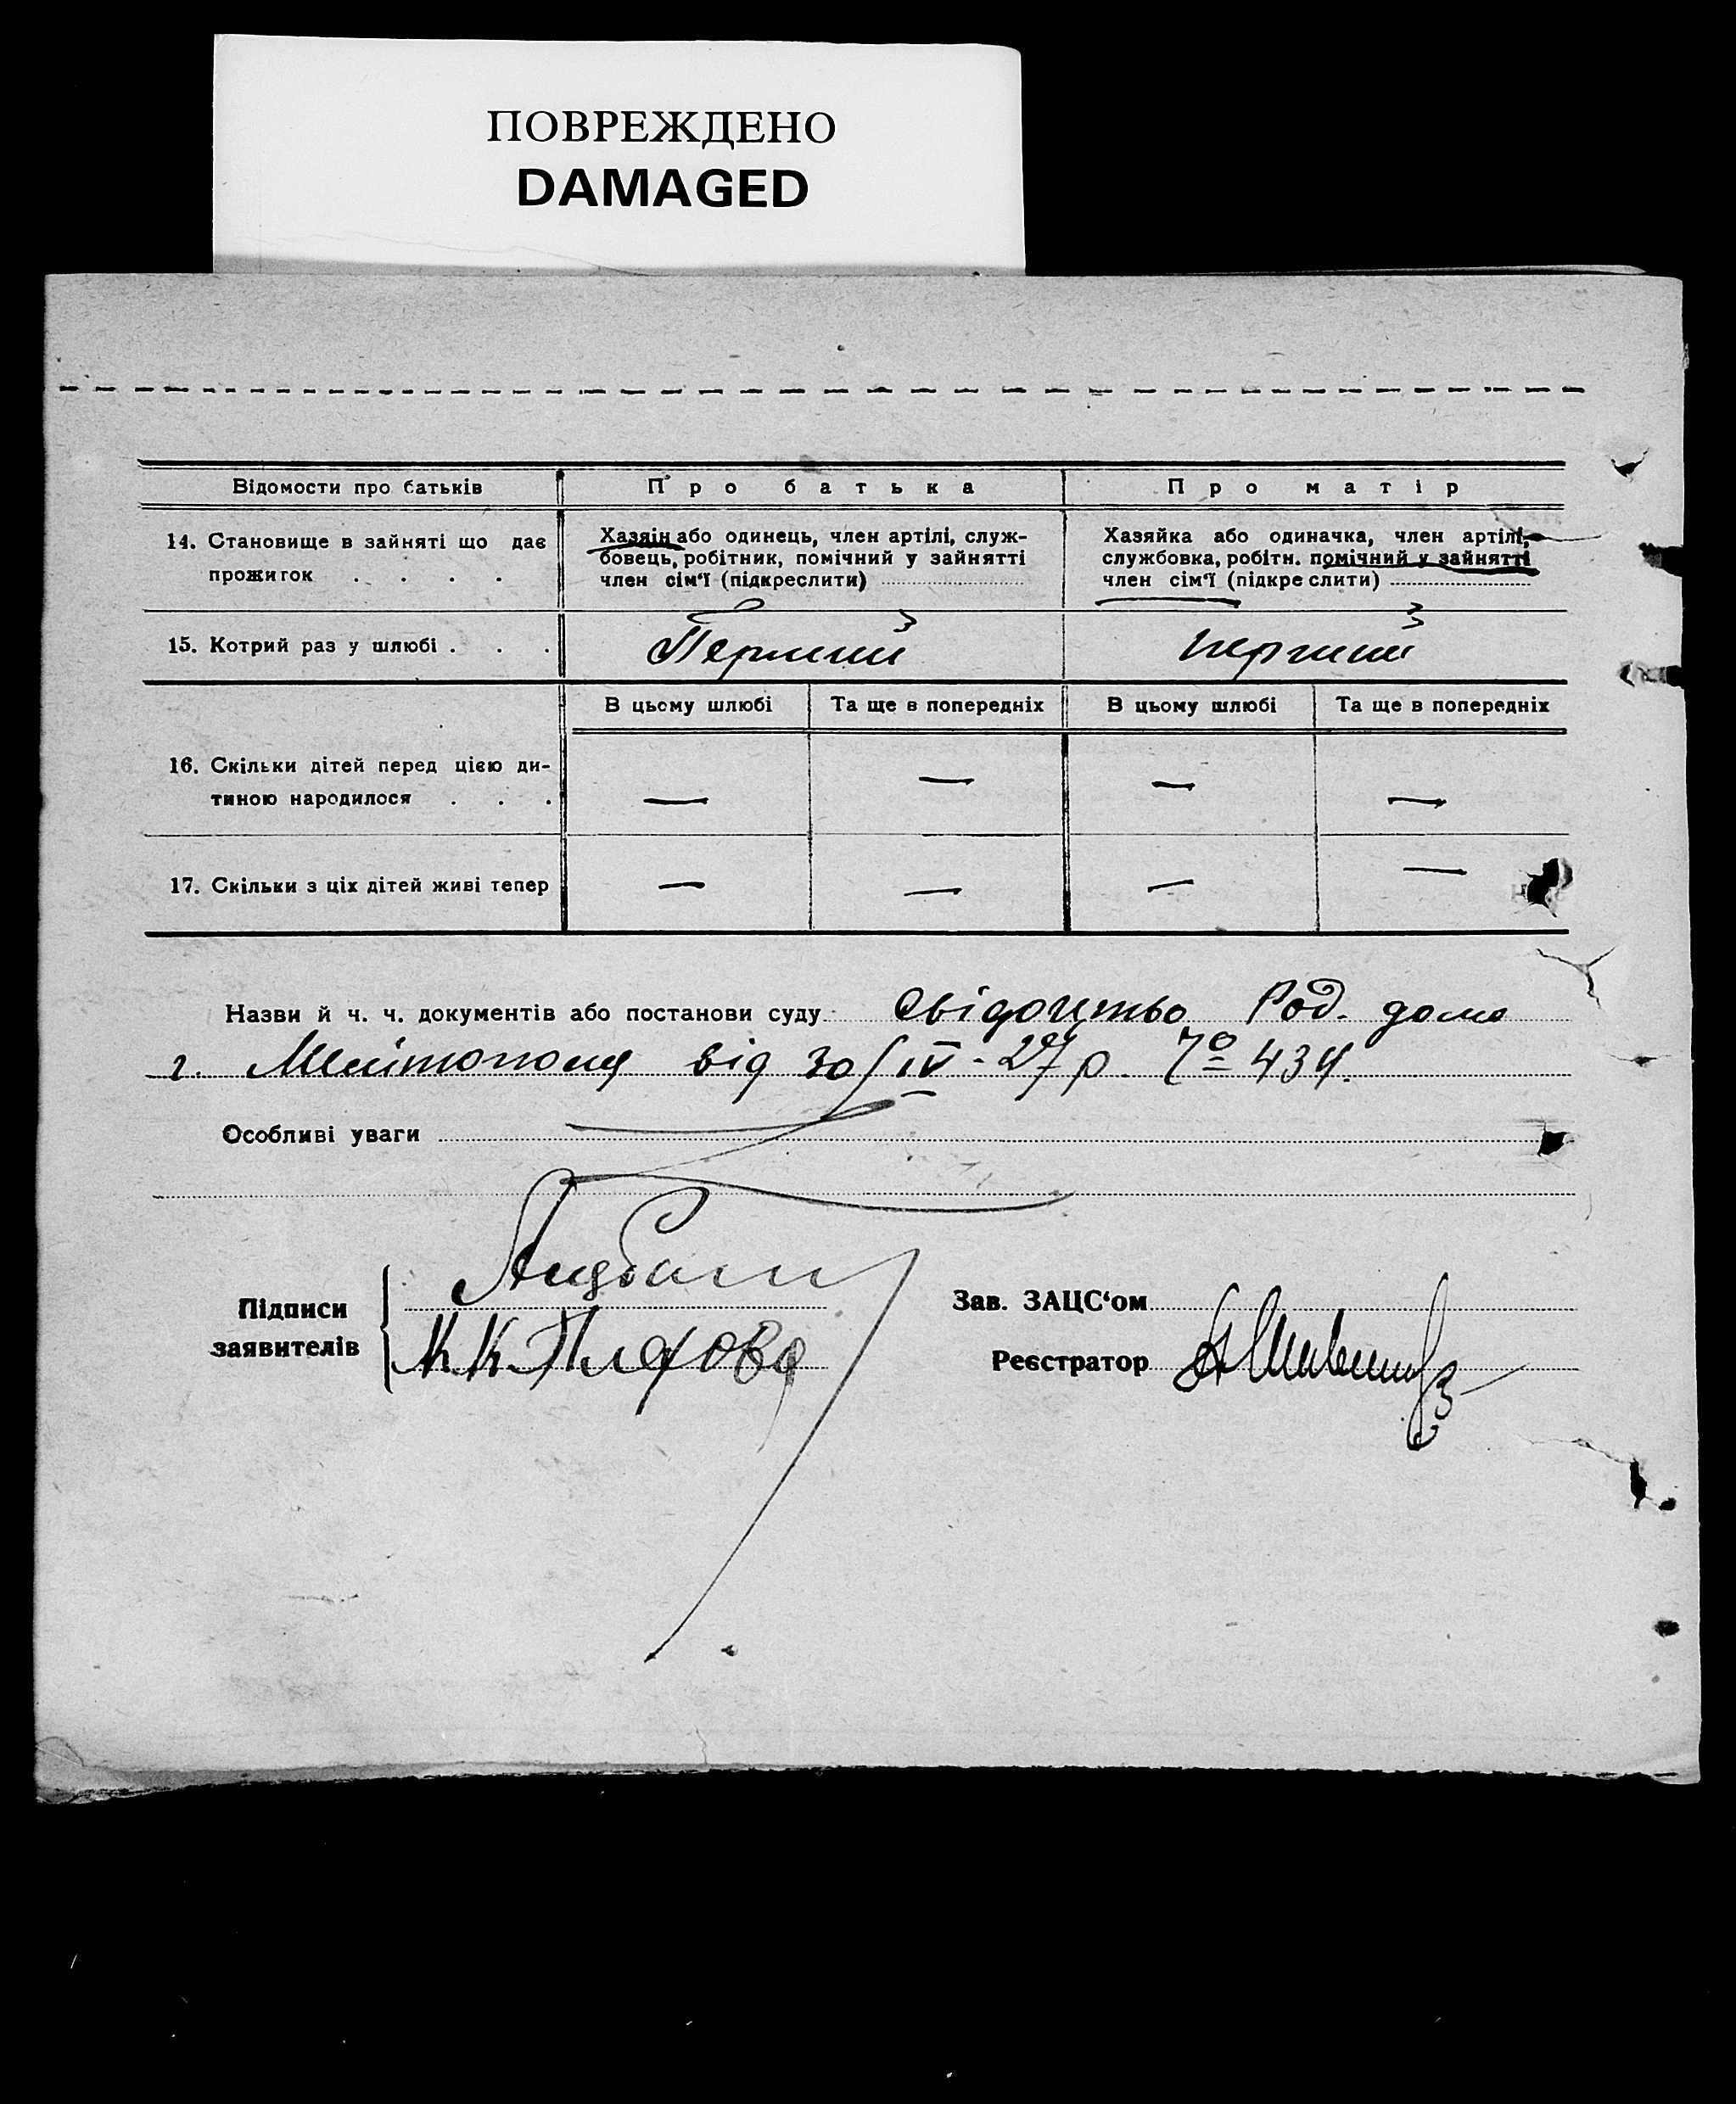 ПОВРЕЖДЕНО
DAMAGED
Відомости про батьків
Про батька
Про матір
14. Становище в зайняті що дає
прожиток . . . .
Хазяїн або одинець, член артілі, служ-
бовець, робітник, помічний у зайнятті
член сім'ї (підкреслити)
Хазяйка або одиначка, член артілі,
службовка, робітн. помічний у зайнятті
член сім'ї (підкреслити)
15. Котрий раз у шлюбі . . .
Перший
перший
В цьому шлюбі
Та ще в попередніх
В цьому шлюбі
Та ще в попередніх
16. Скільки дітей перед цією ди-
тиною народилося . . .
— — — —
17. Скільки з ціх дітей живі тепер
— — — —
Назви й ч. ч. документів або постанови суду Свідоцтво Род. дома
г. Мелітополя від 30/IV-27 р. № 434.
Особливі уваги
Підписи
заявителів
Зав. ЗАЦС'ом
Реєстратор